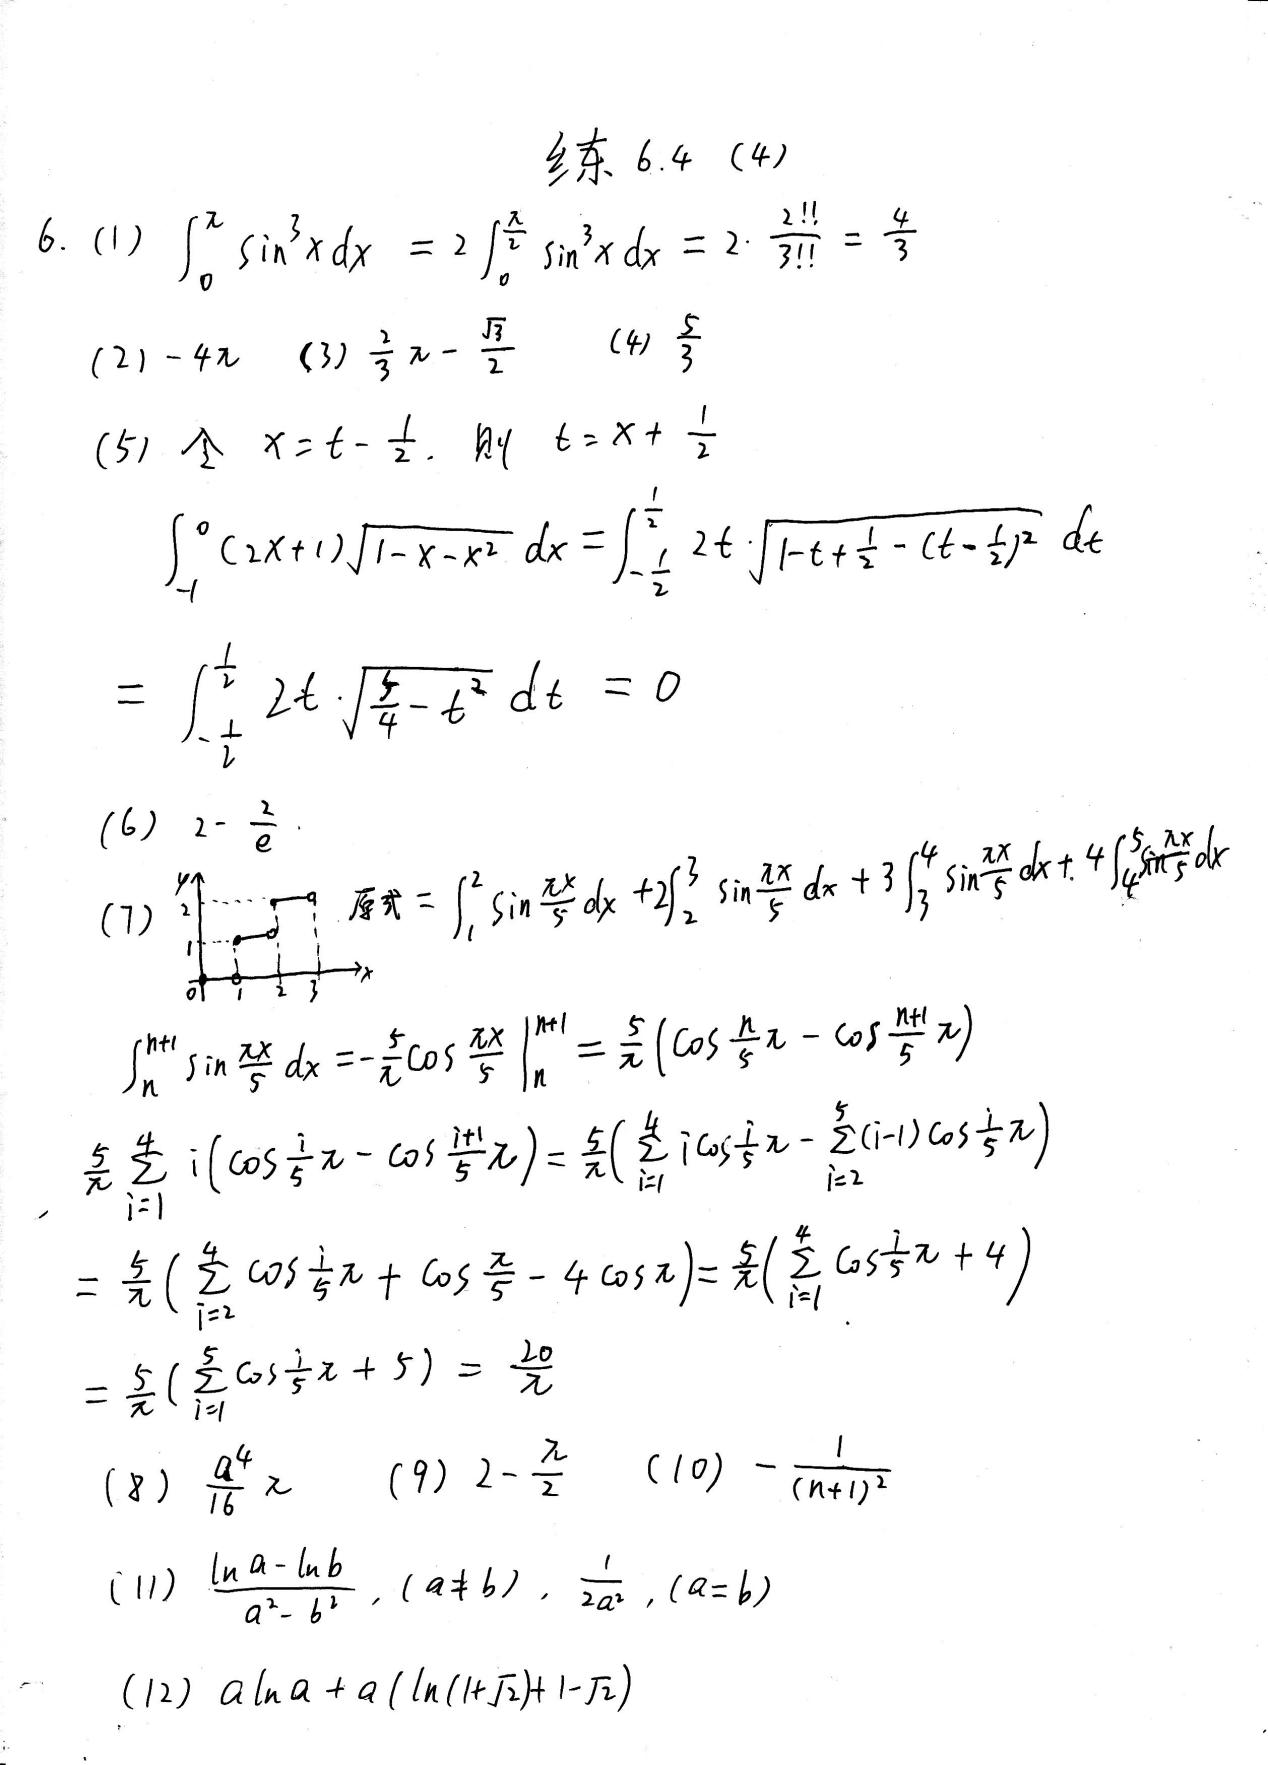 练 6.4 (4)
6. (1) ∫₀^π sin³x dx = 2∫₀^{π/2} sin³x dx = 2·\frac{2!!}{3!!} = \frac{4}{3}
(2) -4π (3) \frac{2}{3}π - \frac{√3}{2} (4) \frac{5}{3}
(5) 令 x = t - \frac{1}{2}. 则 t = x + \frac{1}{2}
∫_{-1}^{0} (2x+1)√(1-x-x²) dx = ∫_{-1/2}^{1/2} 2t·√(1-t+\frac{1}{2}-(t-\frac{1}{2})²) dt
= ∫_{-1/2}^{1/2} 2t·√(\frac{5}{4}-t²) dt = 0
(6) 2 - \frac{2}{e}.
(7) y 2 1 0 1 2 3 x 原式 = ∫₁² sin\frac{πx}{5} dx + 2∫₂³ sin\frac{πx}{5} dx + 3∫₃⁴ sin\frac{πx}{5} dx + 4∫₄⁵ sin\frac{πx}{5} dx
∫_n^{n+1} sin\frac{πx}{5} dx = -\frac{5}{π} cos\frac{πx}{5} |_n^{n+1} = \frac{5}{π}(cos\frac{n}{5}π - cos\frac{n+1}{5}π)
\frac{5}{π} Σ_{i=1}^{4} i(cos\frac{i}{5}π - cos\frac{i+1}{5}π) = \frac{5}{π}(Σ_{i=1}^{4} i cos\frac{i}{5}π - Σ_{i=2}^{5} (i-1) cos\frac{i}{5}π)
= \frac{5}{π}(Σ_{i=2}^{4} cos\frac{i}{5}π + cos\frac{π}{5} - 4cosπ) = \frac{5}{π}(Σ_{i=1}^{4} cos\frac{i}{5}π + 4)
= \frac{5}{π}(Σ_{i=1}^{5} cos\frac{i}{5}π + 5) = \frac{20}{π}
(8) \frac{a⁴}{16}π (9) 2 - \frac{π}{2} (10) -\frac{1}{(n+1)²}
(11) \frac{ln a - ln b}{a² - b²}, (a≠b). \frac{1}{2a²}, (a=b)
(12) a ln a + a(ln(1+√2)+1-√2)